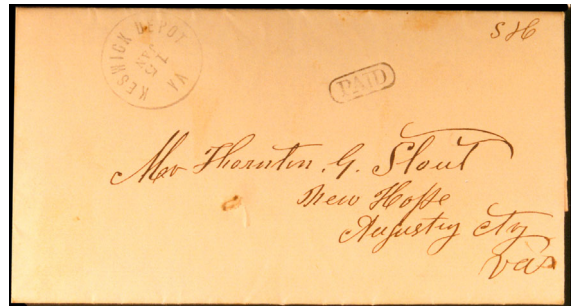 KESWICK DEPOT VA
JAN
PAID
Mr Thornton. G. Stout
New Hope
Augusta Cty
Va